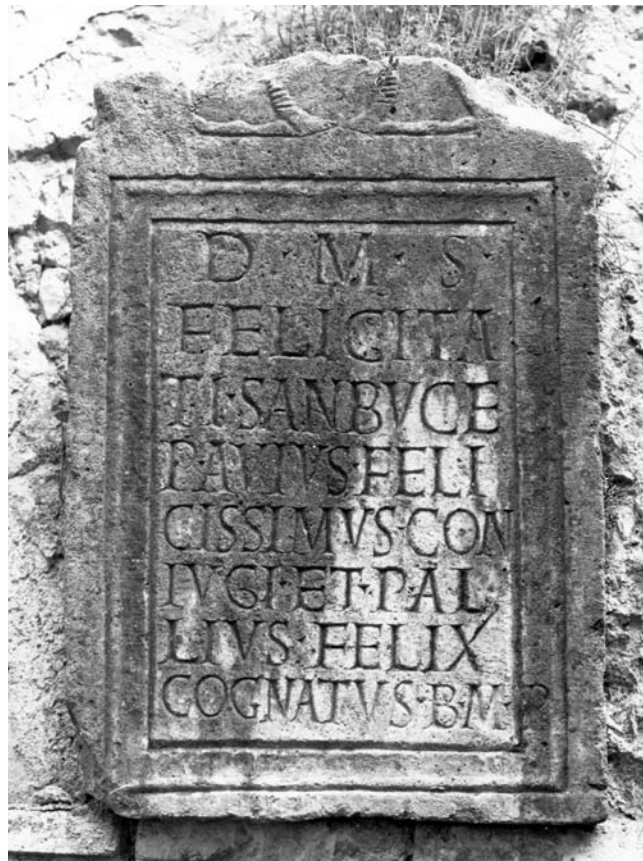 D · M · S ·
FELICITA
TI·SANBVCE
FELI
CISSIMVS·CON
IVGI·ET·P·AL
LIVS·FELIX
COGNATVS·B·M·P